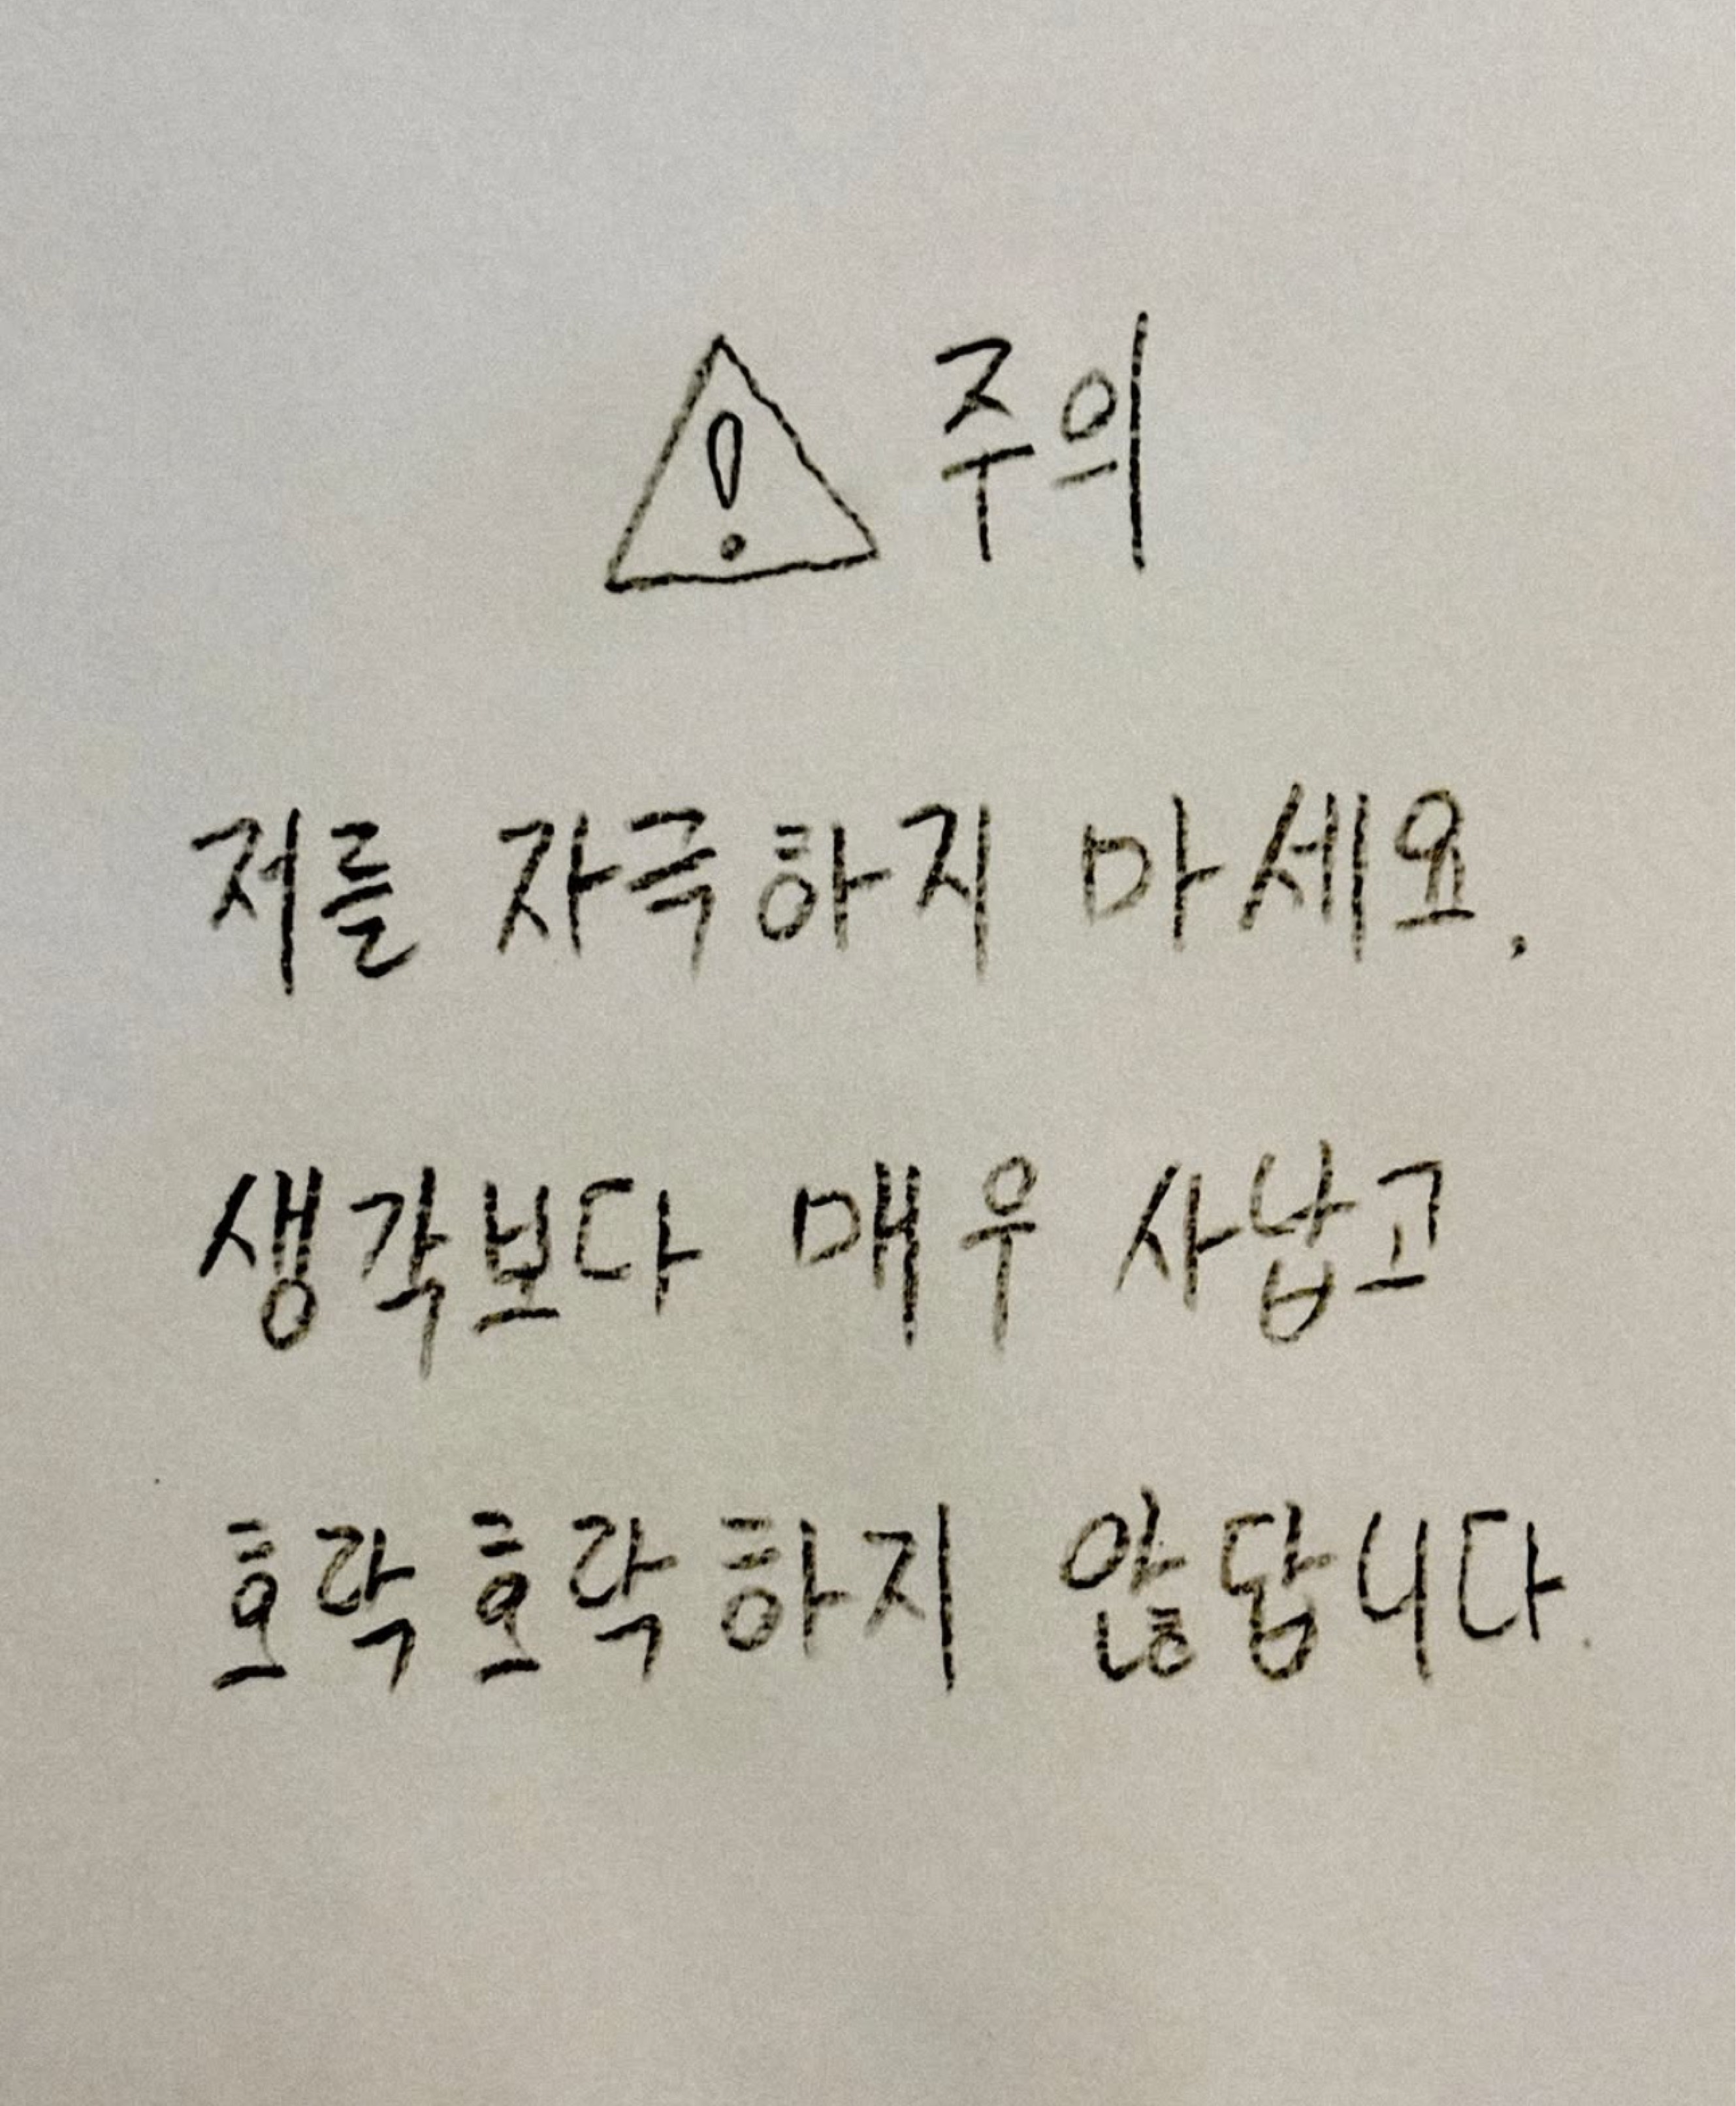 ⚠ 주의
저를 자극하지 마세요.
생각보다 매우 사납고
호락호락하지 않답니다.